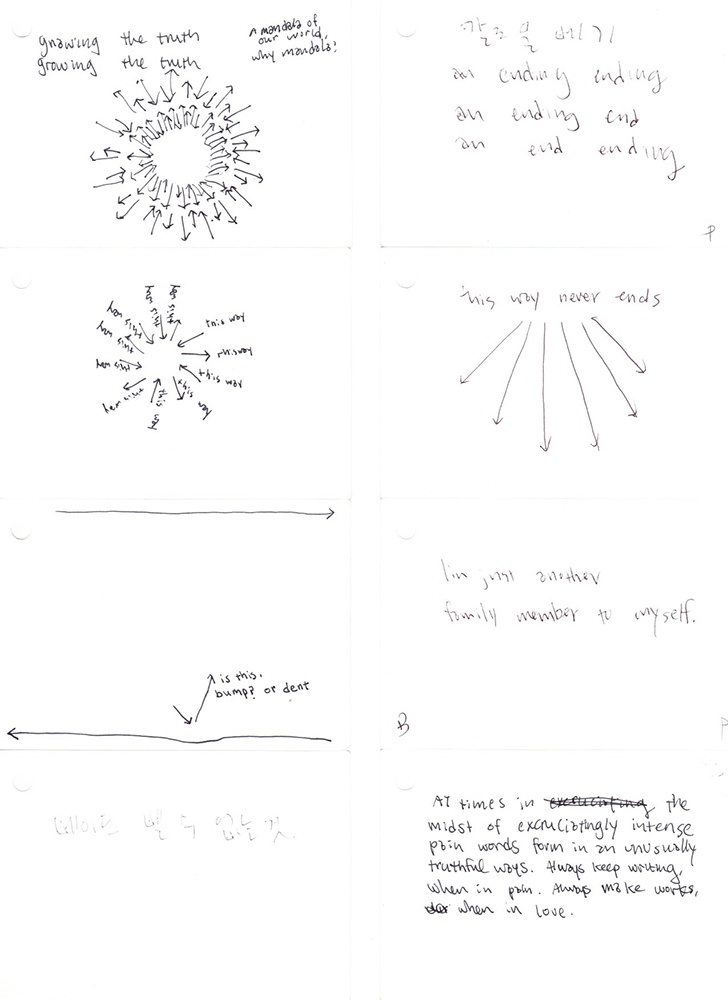 gnawing the truth
growing the truth
A mandala of
our world.
why mandala?
칼로 물 베기
an ending ending
an ending end
an end ending
P
this way
this way
this way
this way
this way never ends
is this.
bump? or dent
I'm just another
family member to myself.
B
P
베이드 벨 수 없는 것.
AT times in excruciating the
midst of excruciatingly intense
pain words form in an unusually
truthful ways. Always keep writing,
when in pain. Always make works,
when in love.